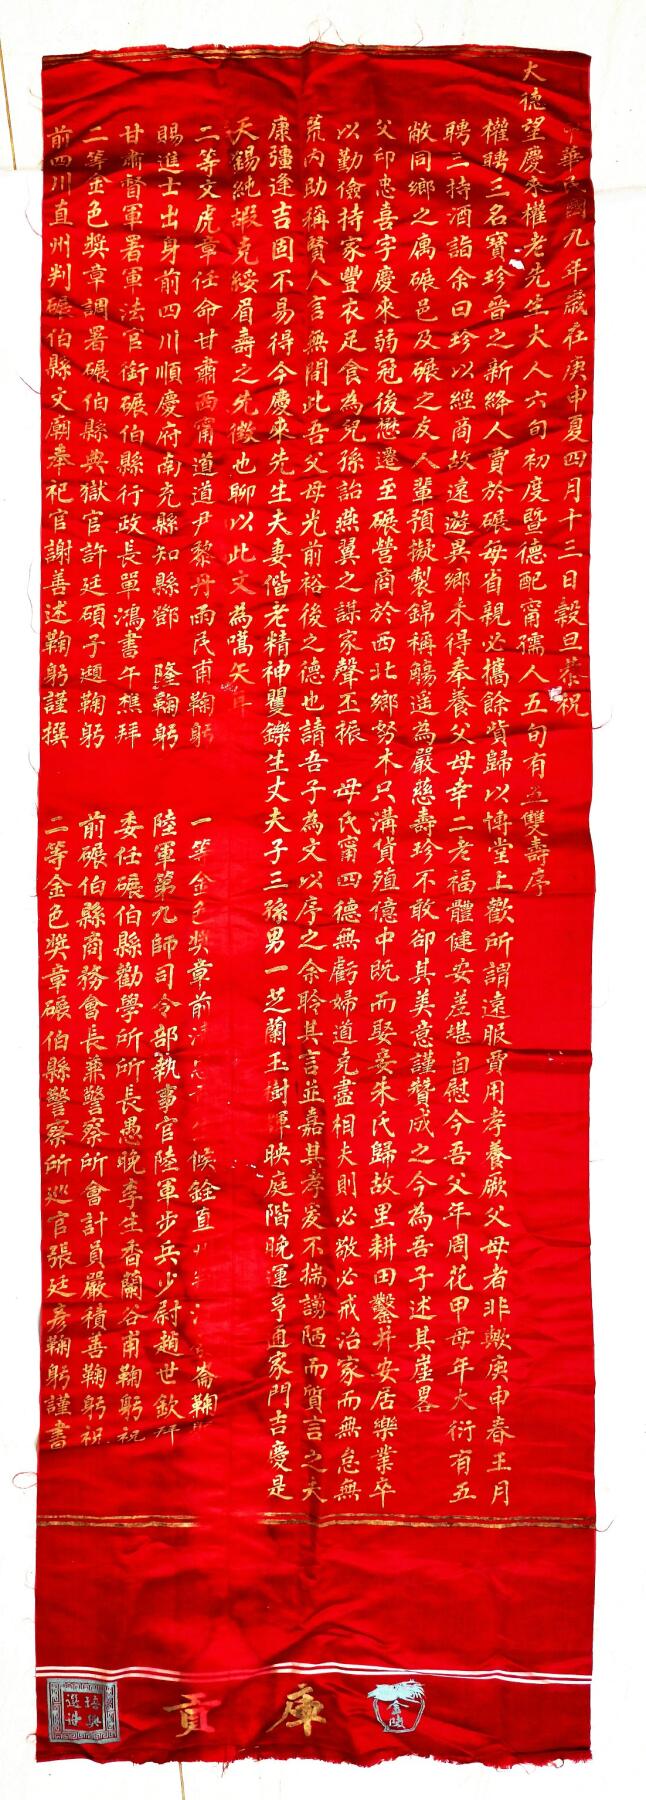 中華民國九年歲在庚申夏四月十三日穀旦恭祝
大德望慶來權老先生大人六旬初度暨德配甯孺人五旬有五雙壽序
權聘三名寶珍晉之新絳人賈於碾每省親必攜餘貲歸以博堂上歡所謂遠服賈用孝養厥父母者非歟庚申春王月
聘三持酒詣余曰珍以經商故遠遊異鄉未得奉養父母幸二老福體健安差堪自慰今吾父年周花甲母年大衍有五
敝同鄉之属碾邑及碾之友人輩預擬製錦稱觴遥為嚴慈壽珍不敢卻其美意謹贊成之今為吾子述其崖畧
父印忠喜字慶來弱冠後懋遷至碾營商於西北鄉努木只溝貨殖億中既而娶妾朱氏歸故里耕田鑿井安居樂業卒
以勤儉持家豐衣足食為兒孫詒燕翼之謀家聲丕振 母氏甯四德無虧婦道克盡相夫則必敬必戒治家而無怠無
荒内助稱賢人言無間此吾父母光前裕後之德也請吾子為文以序之余聆其言並嘉其孝爰不揣譾陋而質言之夫
康彊逢吉固不易得今慶來先生夫妻偕老精神矍鑠生丈夫子三孫男一芝蘭玉樹輝映庭階晚運亨通家門吉慶是
天錫純嘏克綏眉壽之先徵也聊以此文為嚆矢耳
二等文虎章任命甘肅西甯道道尹黎丹雨民甫鞠躬
賜進士出身前四川順慶府南充縣知縣鄧 隆鞠躬
甘肅督軍署軍法官銜碾伯縣行政長單鴻書午樵拜
二等金色獎章調署碾伯縣典獄官許廷碩子題鞠躬
前四川直州判碾伯縣文廟奉祀官謝善述鞠躬謹撰
一等金色獎章前清 候銓直 崙鞠
陸軍第九師司令部執事官陸軍步兵少尉趙世欽拜
委任碾伯縣勸學所所長愚晚李生香蘭谷甫鞠躬祝
前碾伯縣商務會長兼警察所會計員嚴積善鞠躬祝
二等金色獎章碾伯縣警察所巡官張廷彥鞠躬謹書
金陵
庫貢